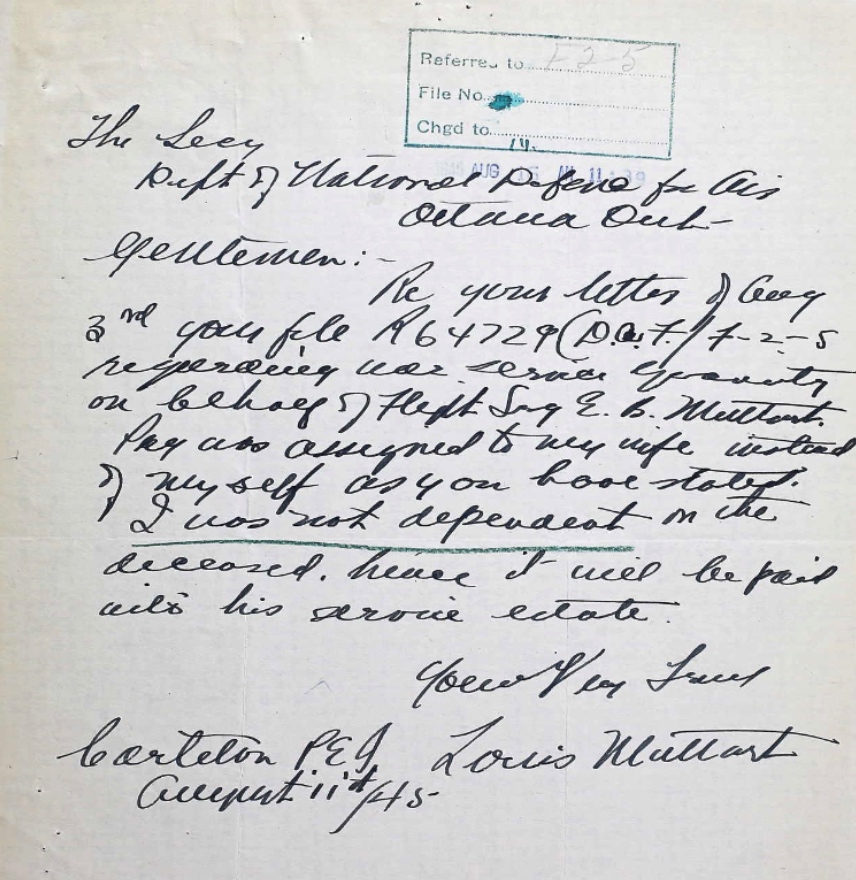 Referred to F2-5
File No.
Chgd to
AUG 15 AM 11:39
The Secy
Dept of National Defense for Air
Ottawa Ont-
Gentlemen:-
Re your letter of Aug
3rd your file R64729 (D.A.F.) F-2-5
regarding war service gratuity
on behalf of Flight Sog E. B. Muttart.
Pay was assigned to my wife instead
of myself as you have stated.
I was not dependent on the
deceased. hence it will be paid
into his service estate.
Yours Very Truly
Carleton P E I Louis Muttart
August 11th/45